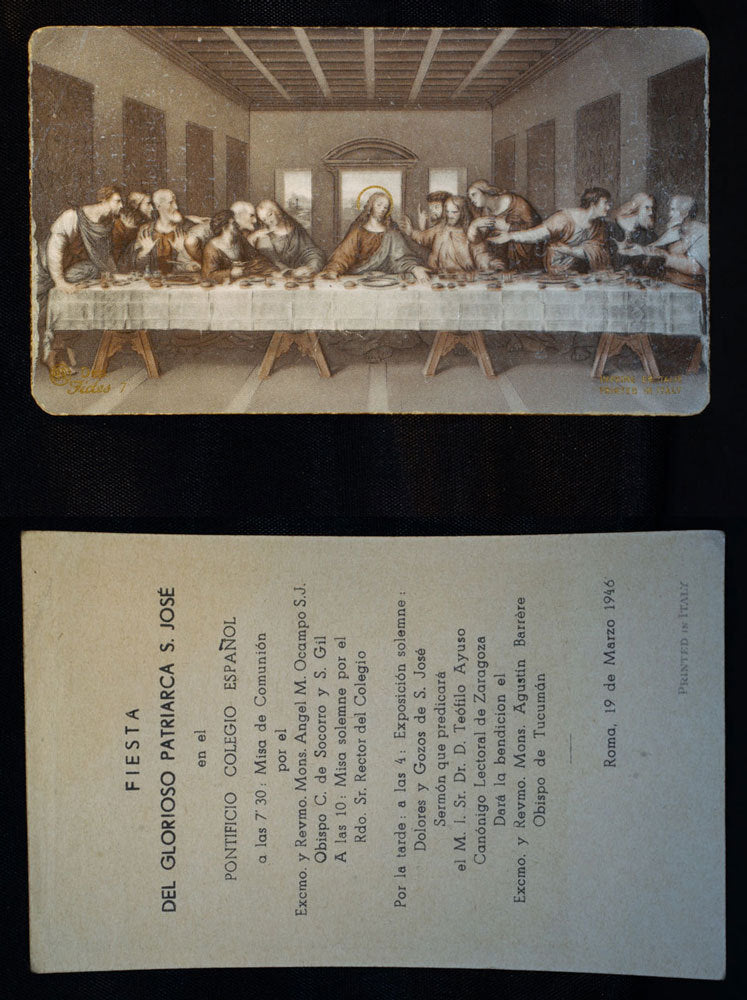 Fides
PRINTED IN ITALY
FIESTA
DEL GLORIOSO PATRIARCA S. JOSÉ
en el
PONTIFICIO COLEGIO ESPAÑOL
a las 7'30: Misa de Comunión
por el
Excmo. y Revmo. Mons. Angel M. Ocampo S.J.
Obispo C. de Socorro y S. Gil
A las 10: Misa solemne por el
Rdo. Sr. Rector del Colegio
Por la tarde: a las 4: Exposición solemne:
Dolores y Gozos de S. José
Sermón que predicará
el M. I. Sr. Dr. D. Teófilo Ayuso
Canónigo Lectoral de Zaragoza
Dará la bendicion el
Excmo. y Revmo. Mons. Agustin Barrère
Obispo de Tucumán
Roma, 19 de Marzo 1946
PRINTED IN ITALY